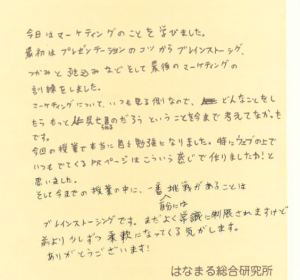 今日はマーケティングのことを学びました。
最初はプレゼンテーションのコツからブレインストーミング、
つかみと 込みなどそして最後のマーケティングの
訓練をしました。
マーケティングについて、いつも見る側なので、どんなことをし
たらもっと 見るのだろうということを今まで考えてなかった
です。
今回の授業で本当に自も勉強になりました。特にウェブの上で
いつもでてくるPRページはこういう感じで作りましたわ!と
思いました。
そして今までの授業の中に、一番挑戦があることは
私的には
ブレインストーシングです。まだよく常識に制限されますけど
前より少しずつ柔軟になってくる気がします。
ありがとうございます!
はなまる総合研究所